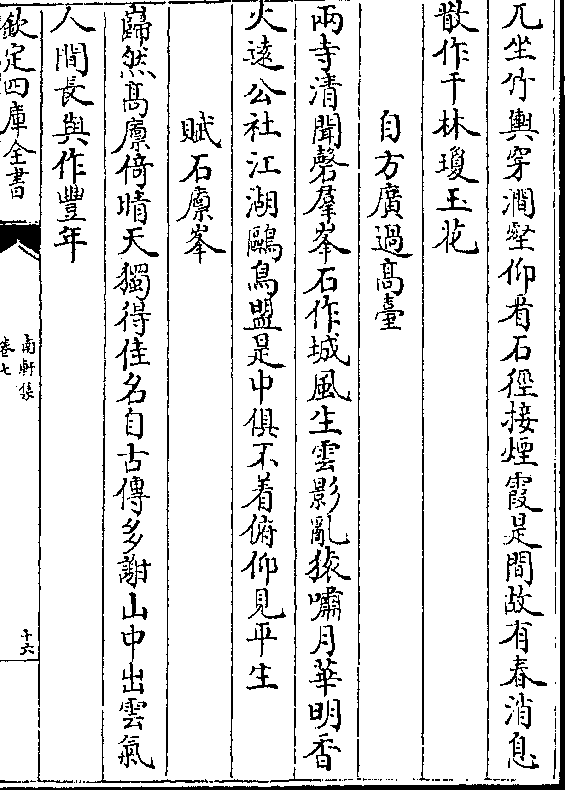 兀坐竹輿穿澗壑仰看石徑接煙霞是間故有春消息
散作千林瓊玉花
自方廣過髙臺
兩寺清聞磬羣峯石作城風生雲影亂猿嘯月華明香
火逺公社江湖鷗鳥盟是中俱不着俯仰見平生
賦石廪峯
巋然髙廪倚晴天獨得佳名自古傳多謝山中出雲氣
人間長與作豐年
欽定四庫全書
南軒集
卷七
十六